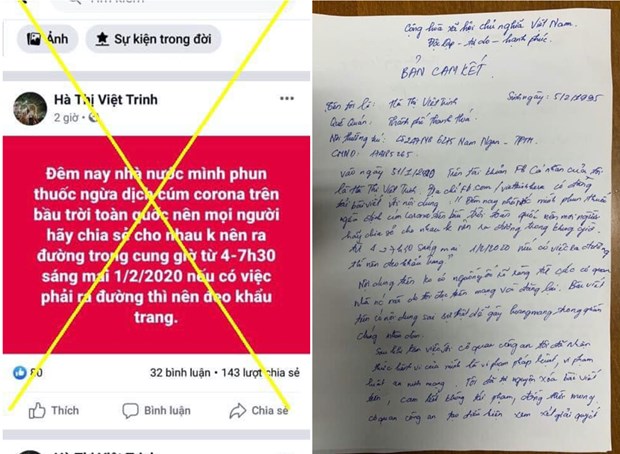 Tìm kiếm
Ảnh
Sự kiện trong đời
Hà Thị Việt Trinh
2 giờ
Đêm nay nhà nước mình phun
thuốc ngừa dịch cúm corona trên
bầu trời toàn quốc nên mọi người
hãy chia sẻ cho nhau k nên ra
đường trong cung giờ từ 4-7h30
sáng mai 1/2/2020 nếu có việc
phải ra đường thì nên đeo khẩu
trang.
80
32 bình luận • 143 lượt chia sẻ
Thích
Bình luận
Chia sẻ
Hà Thị Việt Trinh
Cộng hòa xã hội chủ nghĩa Việt Nam.
Độc lập - tự do - hạnh phúc.
BẢN CAM KẾT.
Tên tôi là: Hà Thị Việt Trinh Sinh ngày: 5/2/1995
Quê Quán: Thành phố Thanh Hoá
Nơi thường trú:
CMND:
vào ngày 31/1/2020 Trên tài khoản FB cá nhân của tôi
là Hà Thị Việt Trinh, Địa chỉ Fb.com/ có đăng
bài viết với nội dung: "Đêm nay nhà nước mình phun thuốc
ngăn dịch cúm corona trên bầu trời toàn quốc nên mọi người
hãy chia sẻ cho nhau k nên ra đường trong khung giờ
từ 4 - 7h30 sáng mai 1/2/2020 nếu có việc ra đường
thì nên đeo khẩu trang"
Nội dung trên ko có nguồn gốc rõ ràng từ các cơ quan
nhà nước mà do tôi đọc trên mạng và đăng lại. Bài viết
trên có nội dung sai sự thật đã gây hoang mang trong quần
chúng nhân dân.
Sau khi làm việc với cơ quan công an tôi đã nhận
thức hành vi của mình là vi phạm pháp luật, vi phạm
luật an ninh mạng. Tôi đã tự nguyện xóa bài viết
trên, cam kết không tái phạm, đồng thời mong
cơ quan công an tạo điều kiện xem xét giải quyết